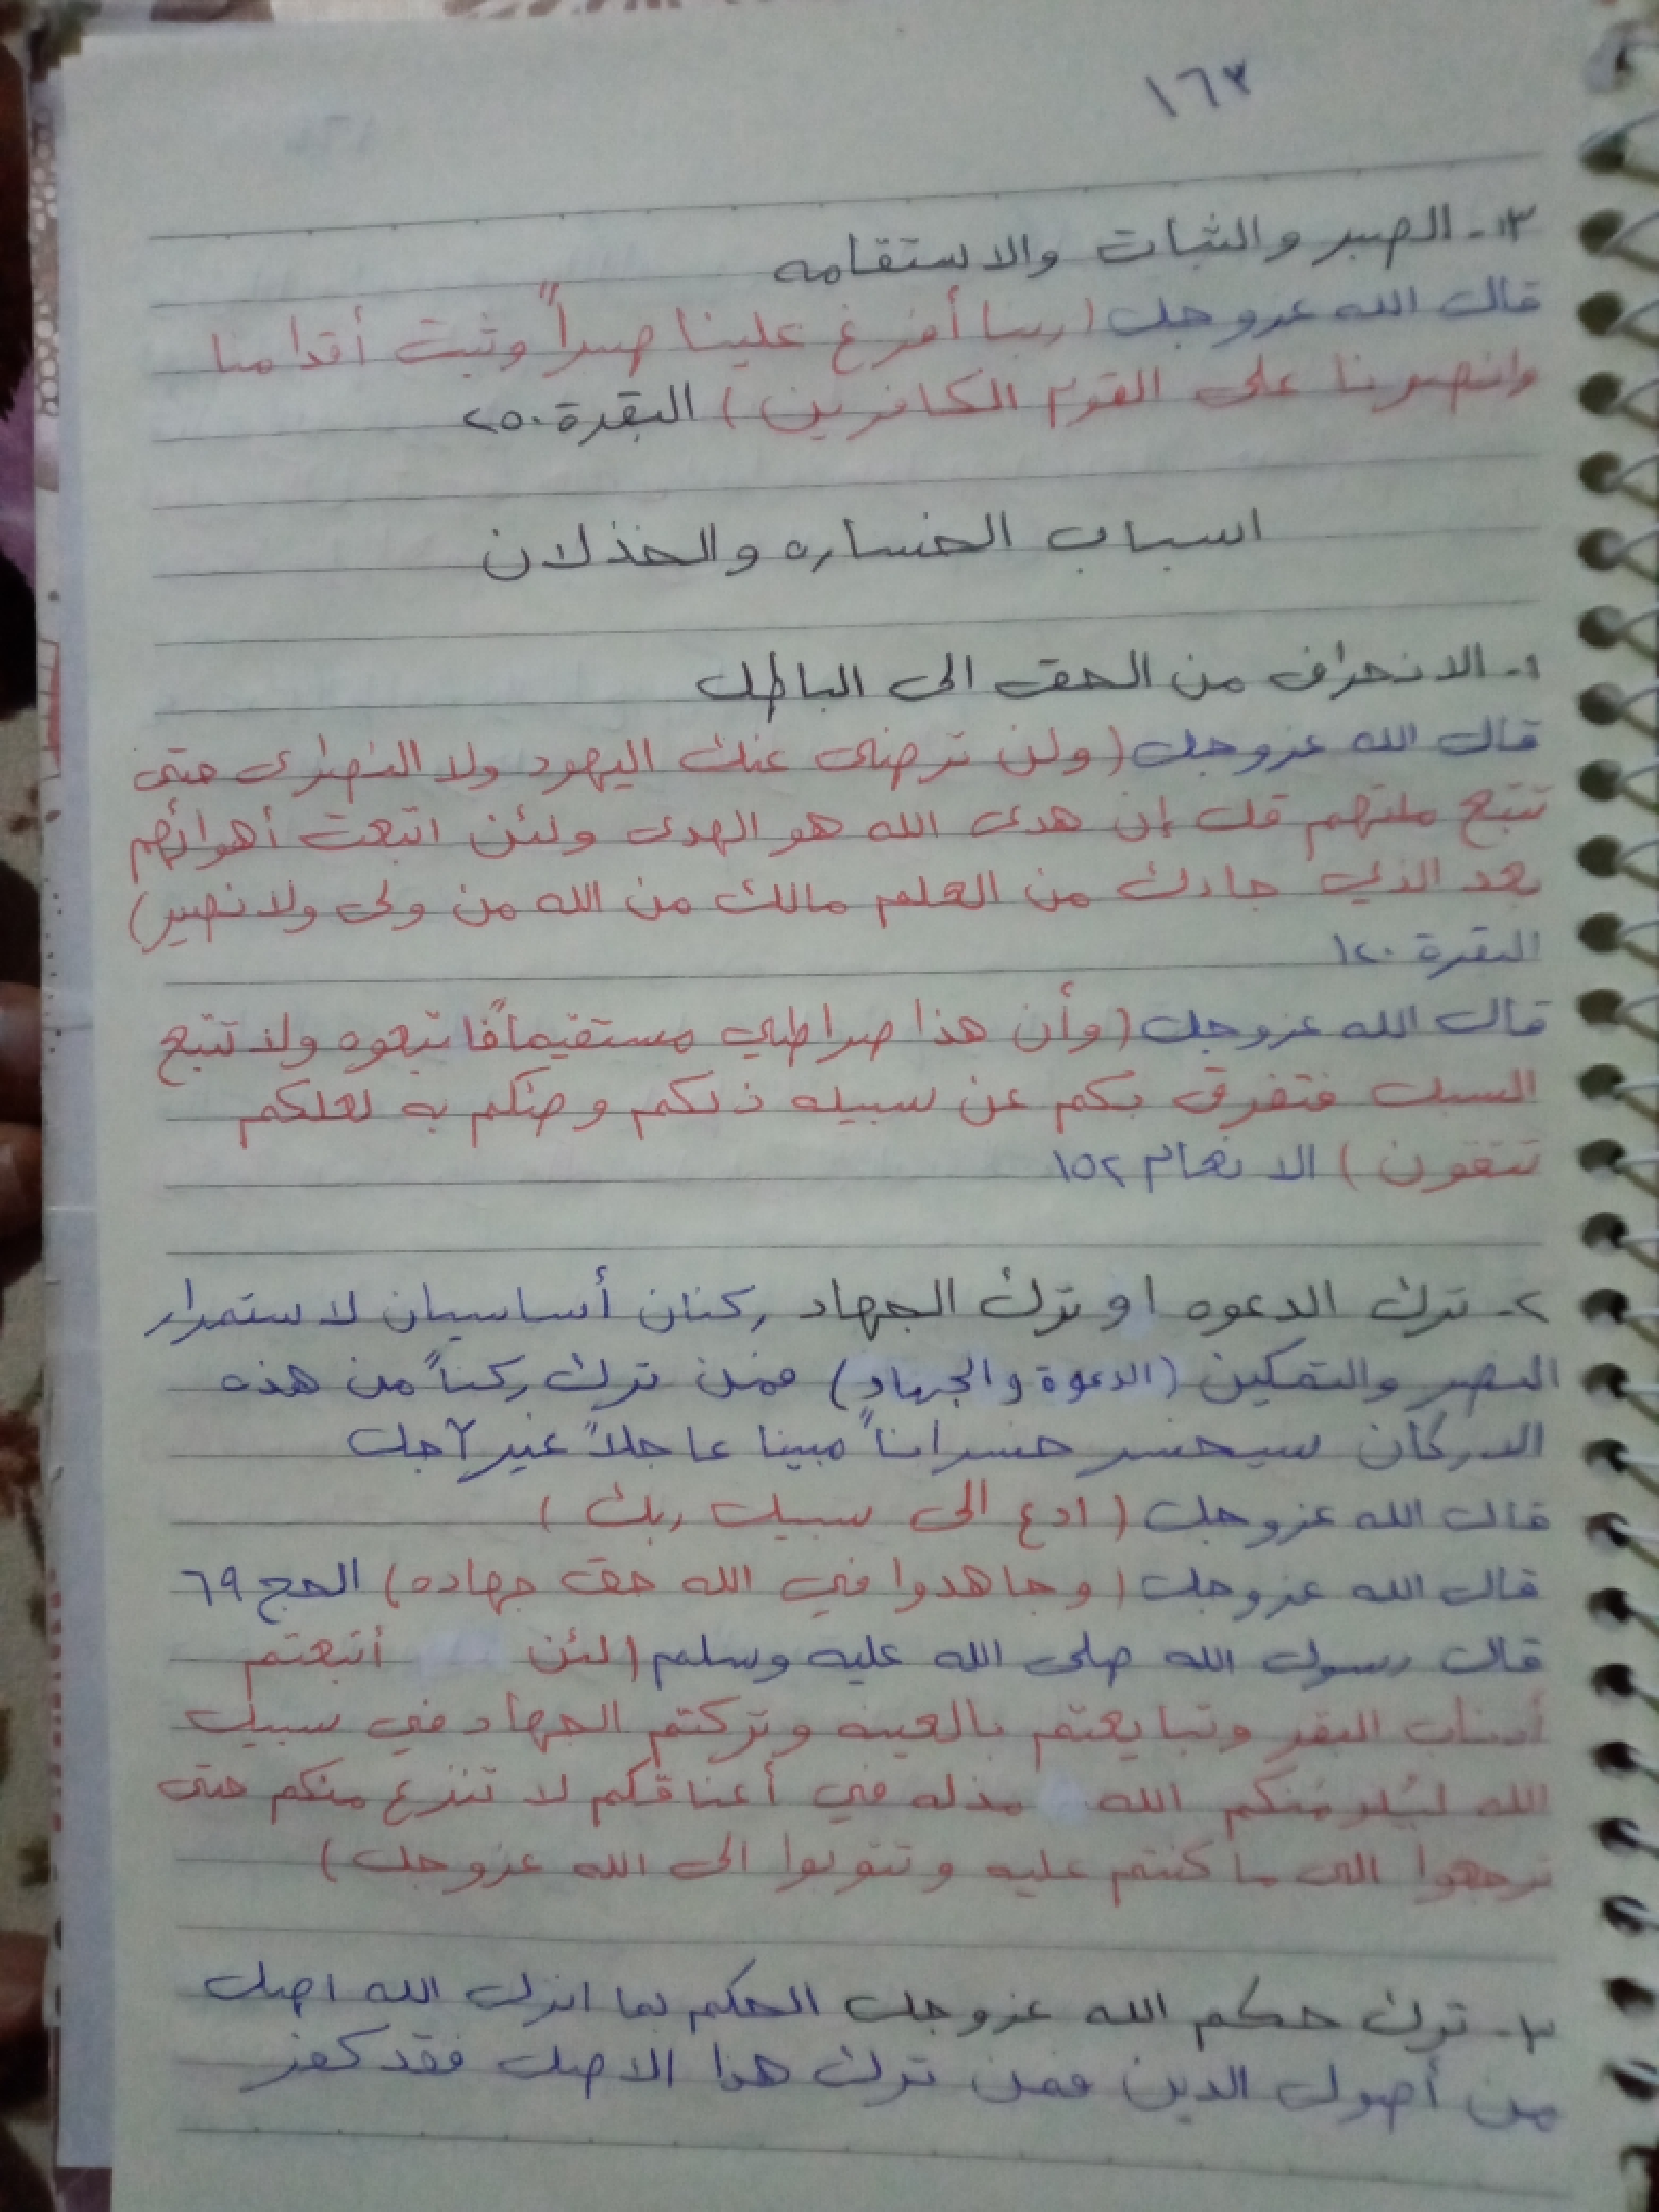 ١٦٣
١٣- الصبر والثبات والاستقامه
قال الله عزوجل (ربنا أفرغ علينا صبراً وثبت أقدامنا
وانصرنا على القوم الكافرين) البقرة ٢٥٠
اسباب الخساره والخذلان
١- الانحراف من الحق الى الباطل
قال الله عزوجل (ولن ترضى عنك اليهود ولا النصارى حتى
تتبع ملتهم قل إن هدى الله هو الهدى ولئن اتبعت أهوائهم
بعد الذي جاءك من العلم مالك من الله من ولى ولا نصير)
البقرة ١٢٠
قال الله عزوجل (وأن هذا صراطي مستقيماً فاتبعوه ولا تتبع
السبل فتفرق بكم عن سبيله ذلكم وصكم به لعلكم
تتقون) الانعام ١٥٢
٢- ترك الدعوه او ترك الجهاد ركنان أساسيان لاستمرار
النصر والتمكين (الدعوة والجهاد) فمن ترك ركناً من هذه
الاركان سيخسر خسراناً مبينا عاجلاً غير آجل
قال الله عزوجل (ادع الى سبيل ربك)
قال الله عزوجل (وجاهدوا في الله حق جهاده) الحج ٦٩
قال رسول الله صلى الله عليه وسلم (لئن أتبعتم
أذناب البقر وتبايعتم بالعينه وتركتم الجهاد في سبيل
الله ليلزمنكم الله مذله في أعناقكم لا تنزع منكم حتى
ترجعوا الى ما كنتم عليه وتتوبوا الى الله عزوجل)
٣- ترك حكم الله عزوجل الحكم بما انزل الله اصل
من أصول الدين فمن ترك هذا الاصل فقد كفر